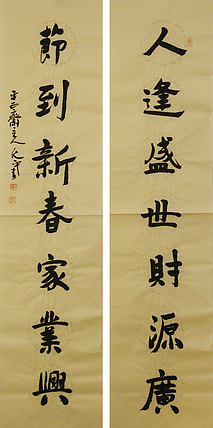 人逢盛世財源廣
節到新春家業興